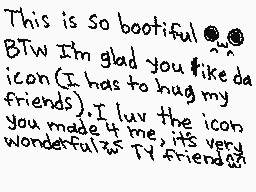 This is so bootiful
BTW I'm glad you like da
icon (I has to hug my
friends). I luv the icon
you made 4 me, it's very
wonderful >w< TY friend ^w^